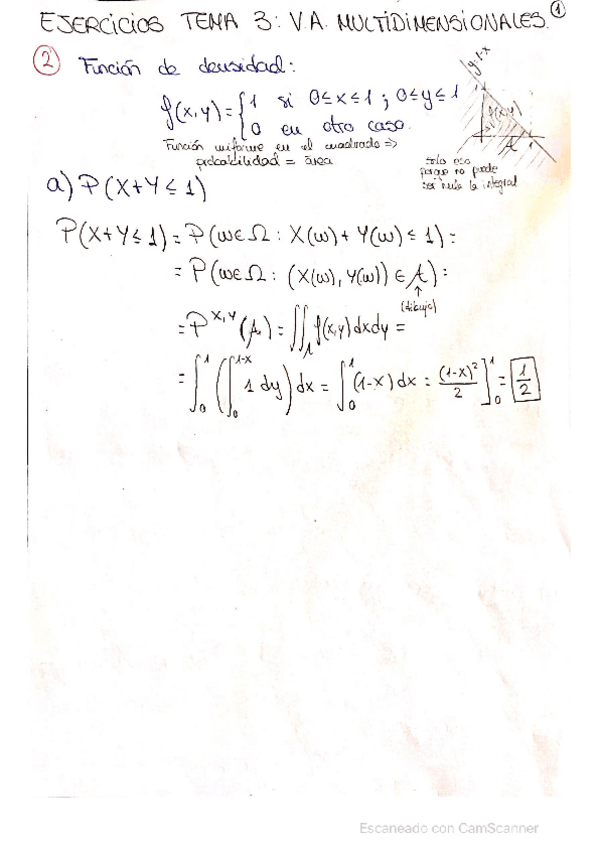 EJERCICIOS TEMA 3: V.A. MULTIDIMENSIONALES. 1
2 Función de densidad:
y=1-x
f(x,y) = { 1 si 0≤x≤1 ; 0≤y≤1
0 en otro caso.
Función uniforme en el cuadrado ⇒
probabilidad = área
solo eso
porque no puede
ser nula la integral
a) P(X+Y≤1)
P(X+Y≤1) = P(ω∈Ω : X(ω) + Y(ω) ≤ 1) =
= P(ω∈Ω : (X(ω), Y(ω)) ∈ A) =
↑
(dibujo)
= P^{X,Y}(A) = ∬_A f(x,y) dxdy =
= ∫_0^1 (∫_0^{1-x} 1 dy) dx = ∫_0^1 (1-x) dx = (1-x)²/2 ]_0^1 = 1/2
Escaneado con CamScanner